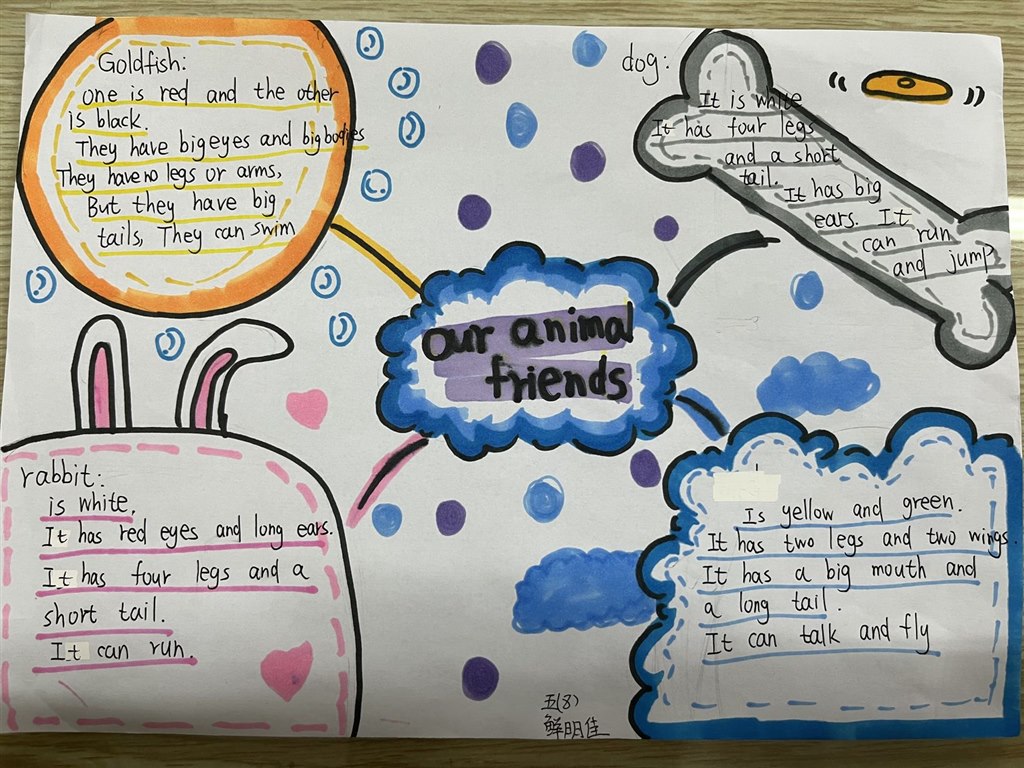 Goldfish:
one is red and the other
is black.
They have big eyes and big bodies
They have no legs or arms,
But they have big
tails, They can swim
dog:
It is white
It has four legs
and a short
tail.
It has big
ears. It
can run
and jump
our animal
friends
rabbit:
is white,
It has red eyes and long ears.
It has four legs and a
short tail.
It can run.
Is yellow and green.
It has two legs and two wings.
It has a big mouth and
a long tail.
It can talk and fly
五(8)
鲜明佳